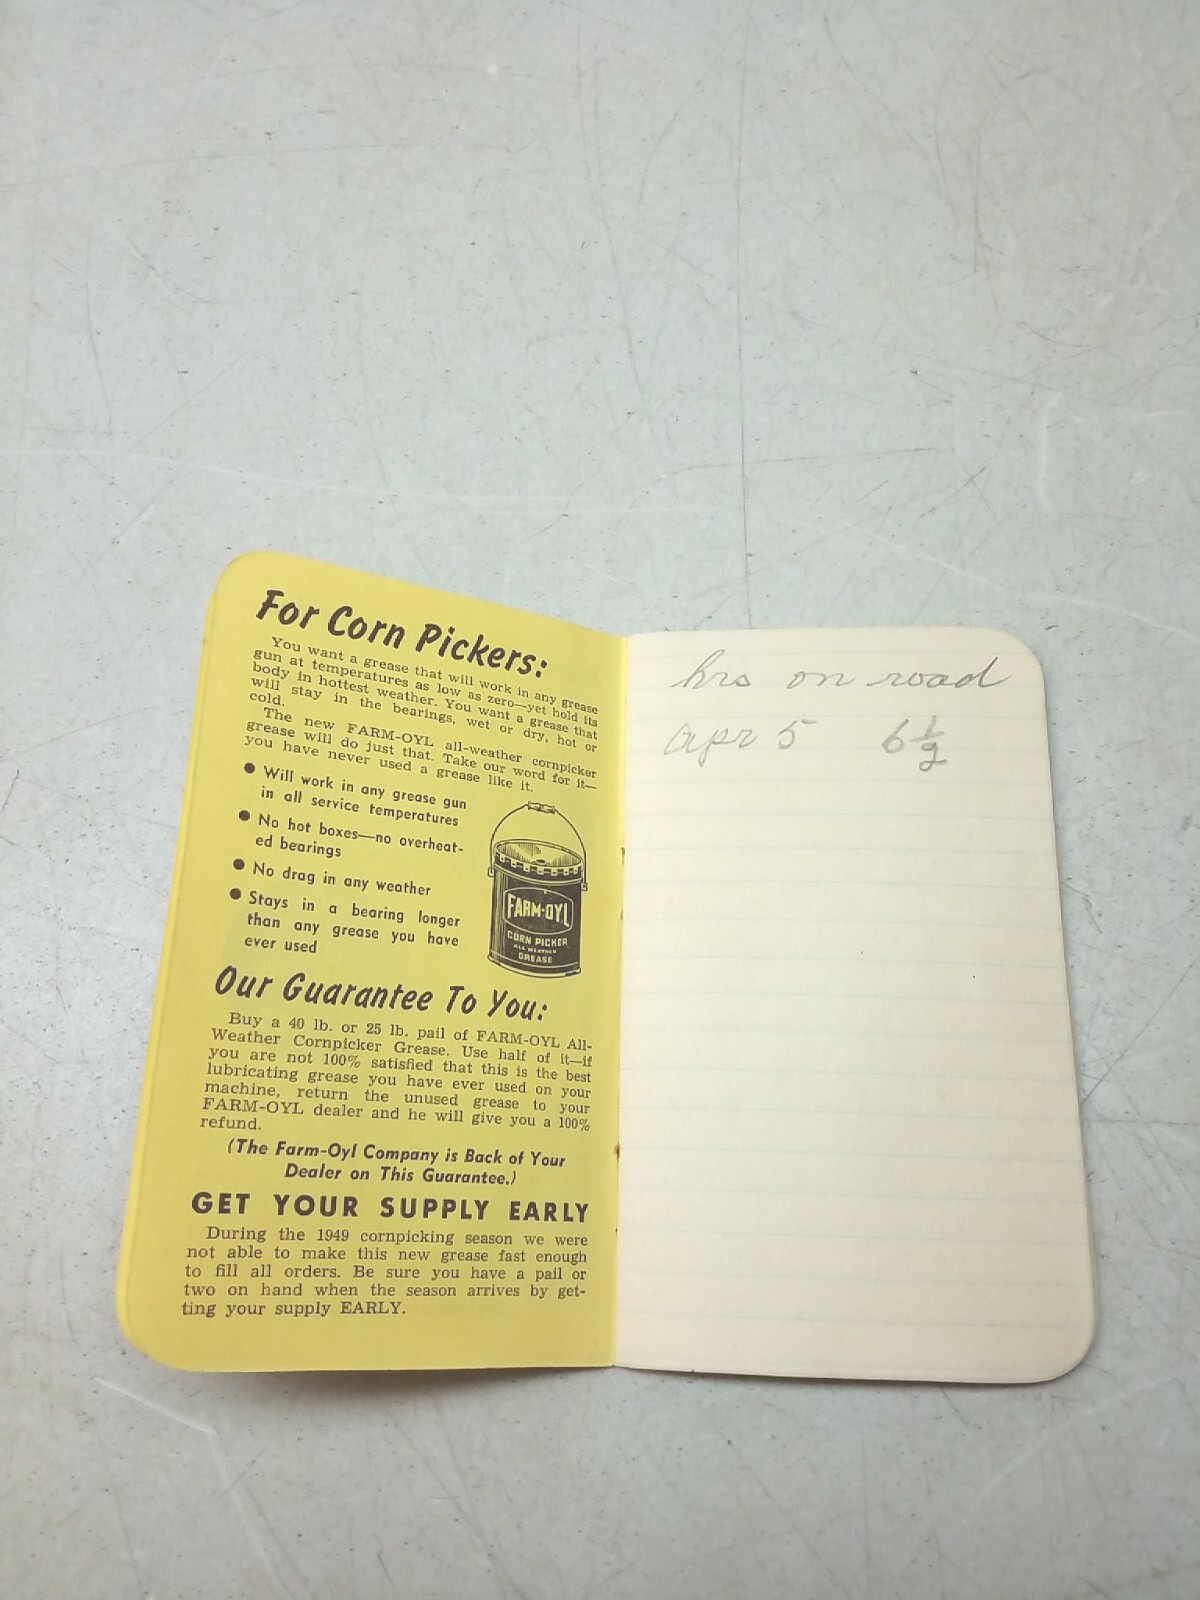 For Corn Pickers:
You want a grease that will work in any grease
gun at temperatures as low as zero—yet hold its
body in hottest weather. You want a grease that
will stay in the bearings, wet or dry, hot or
cold.
The new FARM-OYL all-weather cornpicker
grease will do just that. Take our word for it—
you have never used a grease like it.
● Will work in any grease gun
in all service temperatures
● No hot boxes—no overheat-
ed bearings
● No drag in any weather
● Stays in a bearing longer
than any grease you have
ever used
FARM-OYL
CORN PICKER
ALL WEATHER
GREASE
Our Guarantee To You:
Buy a 40 lb. or 25 lb. pail of FARM-OYL All-
Weather Cornpicker Grease. Use half of it—if
you are not 100% satisfied that this is the best
lubricating grease you have ever used on your
machine, return the unused grease to your
FARM-OYL dealer and he will give you a 100%
refund.
(The Farm-Oyl Company is Back of Your
Dealer on This Guarantee.)
GET YOUR SUPPLY EARLY
During the 1949 cornpicking season we were
not able to make this new grease fast enough
to fill all orders. Be sure you have a pail or
two on hand when the season arrives by get-
ting your supply EARLY.
hrs on road
Apr 5 6 1/2